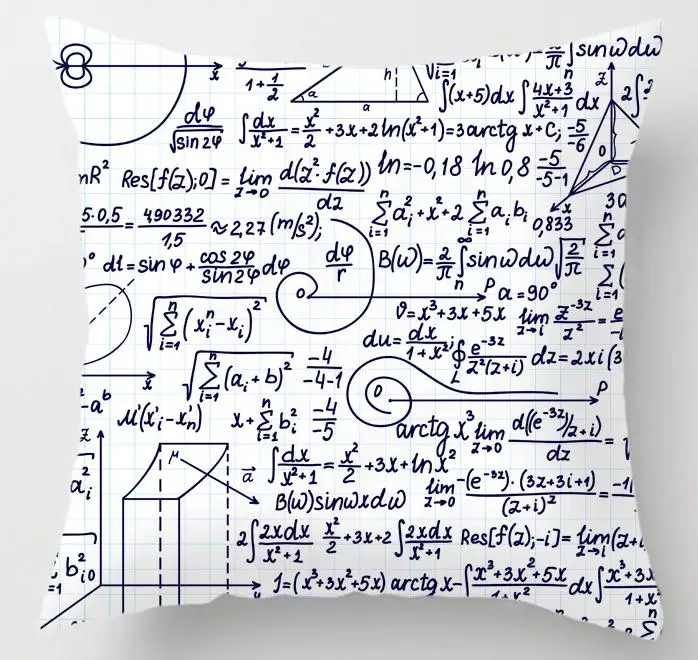 ∫sinωdω
1+1/2 a a h √i=1 ∫(x+5)dx ∫(4x+3)/(x²+1) dx z
dφ/√sin2φ ∫dx/(x²+1) = x²/2 +3x+2ln(x²+1)=3arctg x+C; -5/-6 0 D
nR² Res[f(z);0] = lim z→0 d(z²·f(z))/dz ln=-0,18 ln0,8 -5/-5-1
5·0,5/ = 490332/1,5 ≈2,27(m/s²); n∑i=1 aᵢ²+x²+2 n∑i=1 aᵢbᵢ 0,833 x
dl=sinφ+cos2φ/sin2φ dφ dφ/r B(ω)=2/π ∞∫n sinωdω√(2/π)
√(n∑i=1 (xᵢⁿ-xᵢ)²) 0 P a=90°
ϑ=x³+3x+5x lim z→i z⁻³ᶻ/z² =
du=dx/(1+x²); ∮L e⁻³ᶻ/(z²(z+i)) dz=2xi(3
√(n∑i=1 (aᵢ+b)²) -4/-4-1
x 0 P
-aᵇ M'(x'ᵢ-x'ₙ) x+n∑i=1 bᵢ² -4/-5 arctg x³ lim z→0 d((e⁻³ᶻ)/z+i)/dz =
z μ a⃗ ∫dx/(x²+1) = x²/2 +3x+lnx²
aᵢ² B(ω)sinωxdω lim z→0 -(e⁻³ᶻ)·(3z+3i+1)/(z+i)² =
2∫2xdx/(x²+1) x²/2 +3x+2∫2xdx/(x²+1) Res[f(z);-i]= lim z→i (z+i
b²ᵢ₀
1=(x³+3x²+5x) arctg x-∫(x³+3x²+5x)/(1+x²) dx∫(x³+3x